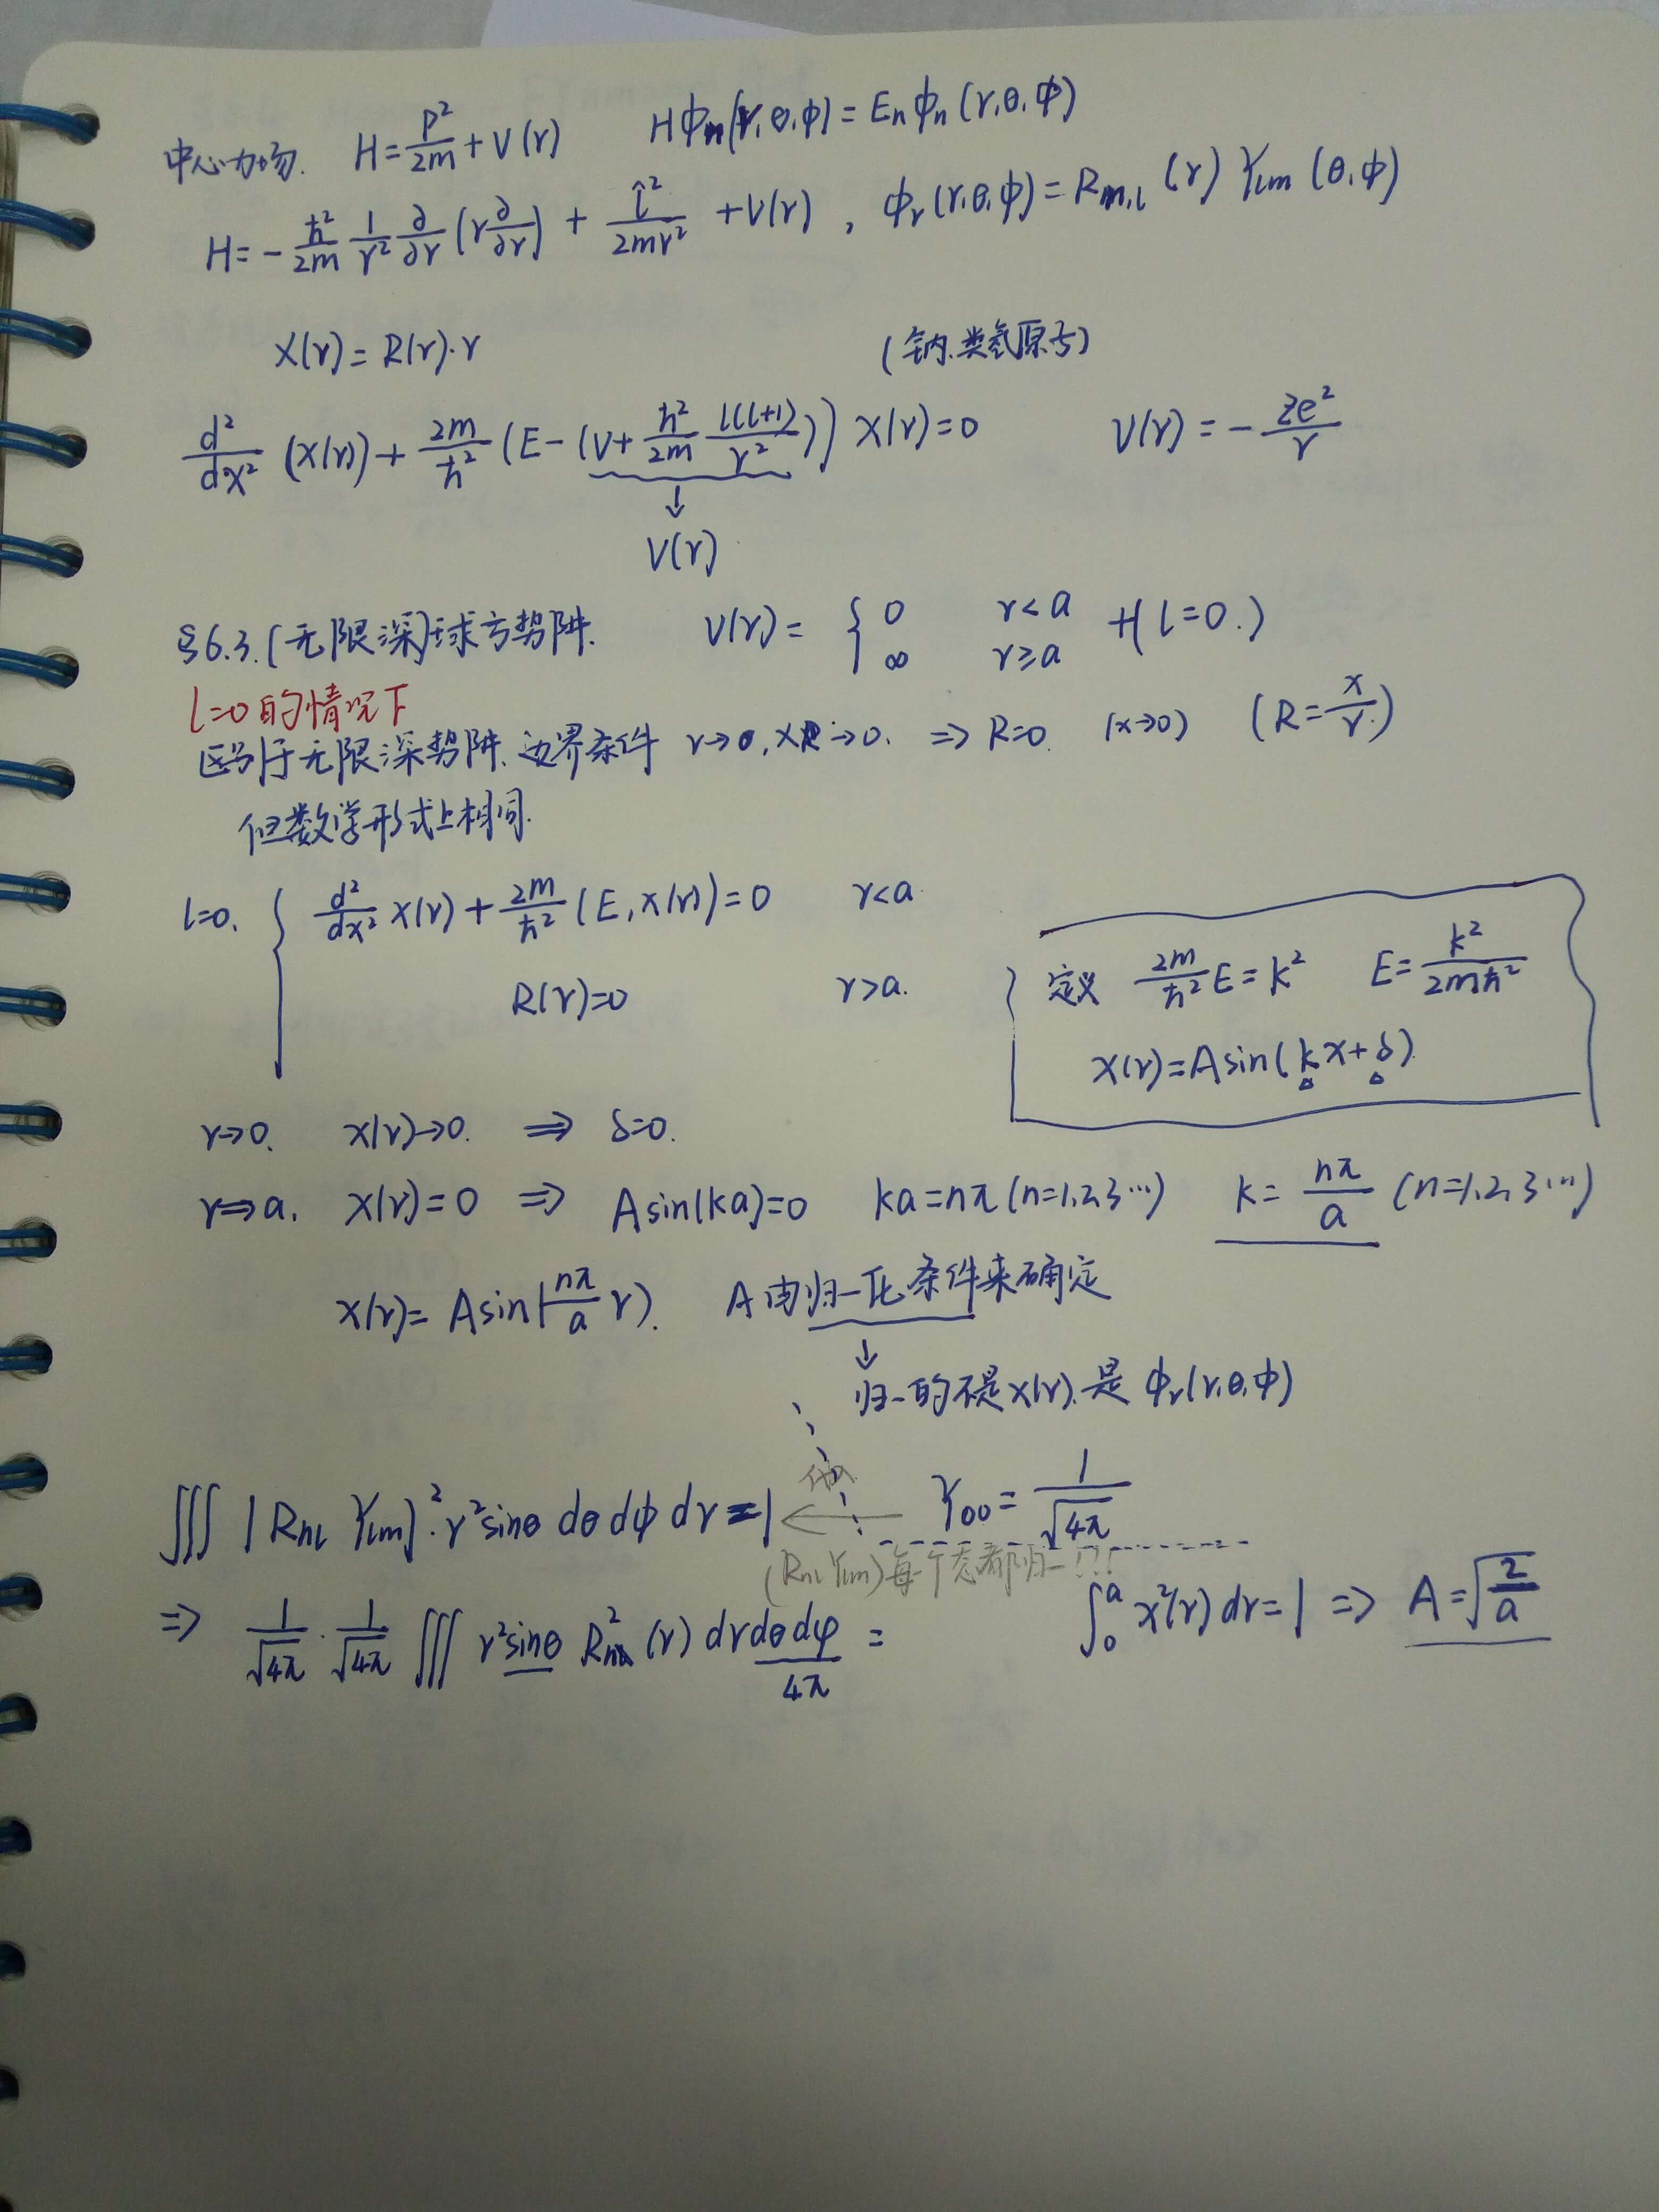 中心力场. H=P²/2m+V(r) Hϕn(r,θ,ϕ)=Enϕn(r,θ,ϕ)
H=-ħ²/2m 1/r² ∂/∂r(r∂/∂r)+l̂²/2mr²+V(r), ϕr(r,θ,ϕ)=Rm,l(r)Ylm(θ,ϕ)
X(r)=R(r)·r (钠.类氢原子)
d²/dx²(X(r))+2m/ħ²(E-(V+ħ²/2m l(l+1)/r²))X(r)=0 V(r)=-Ze²/r
↓
V(r)
§6.3.(无限深)球方势阱. V(r)={0 r<a +(l=0.)
∞ r≥a
l=0的情况下
区别于无限深势阱.边界条件 r→0,X→0. ⇒R=0. (x→0) (R=x/r)
但数学形式上相同.
l=0. { d²/dx² X(r)+2m/ħ²(E,X(r))=0 r<a
R(r)=0 r>a.
定义 2m/ħ² E=k² E=k²/2mħ²
X(r)=Asin(kx+δ)
r→0. X(r)→0. ⇒ δ=0.
r⇒a. X(r)=0 ⇒ Asin(ka)=0 ka=nπ(n=1,2,3…) k=nπ/a (n=1,2,3…)
X(r)=Asin(nπ/a r). A由归一化条件来确定
↓
归一的不是X(r).是ϕr(r,θ,ϕ)
∭|Rnl Ylm|²·r²sinθ dθdϕdr=1 ← Y00=1/√4π
(Rnl Ylm)每个态都归一!!!
⇒ 1/√4π·1/√4π ∭r²sinθ R²(r)drdθdφ = ∫₀ᵃx²(r)dr=1 ⇒ A=√2/a
4π